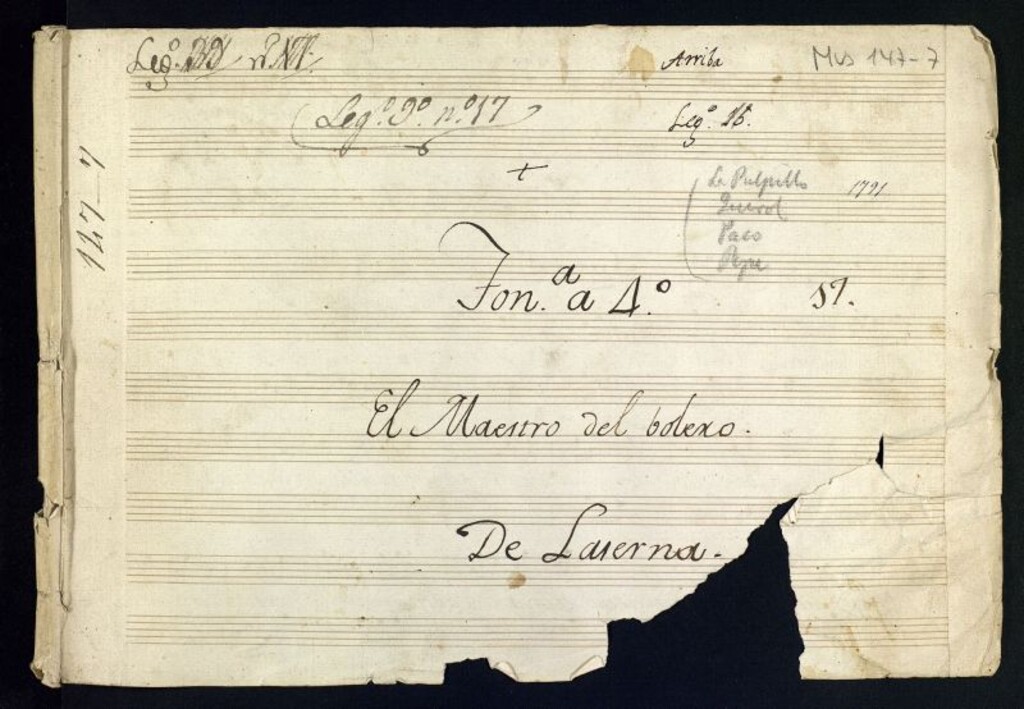 Leg.º
Arriba
Mus 147-7
Leg.º 9.º n.º 17
Leg.º 15.
+
147-7
La Pulpillo
1791
Querol
Paco
Pepe
Ton.ª a 4.º
57.
El Maestro del bolero.
De Laserna.